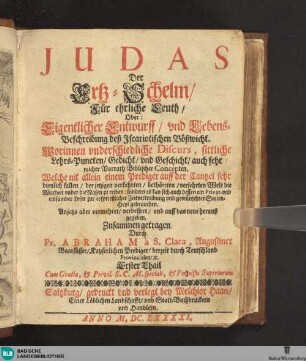 JUDAS
Der
Ertz-Schelm/
Für ehrliche Leuth/
Oder:
Eigentlicher Entwurff/ vnd Lebens-
Beschreibung deß Iscariotischen Bößwicht.
Worinnen vnderschidliche Discurs, sittliche
Lehrs-Puncten/ Gedicht/ vnd Geschicht/ auch sehr
reicher Vorrath Biblischer Concepten.
Welche nit allein einem Prediger auff der Cantzel sehr
dienlich fallen/ der jetzigen verkehrten/ bethörrten/ versehrten Welt die
Warheit vnder die zu reiben: sondern es kan sich auch dessen ein Privat- und
Heyl gebrauchen.
Anjetzo aber vermehret/ verbessert/ und auffs neue herauß
gegeben.
Zusammen getragen
Durch
Pr. ABRAHAM à S. Clara, Augustiner
Baarfüsser/ Kayserlichen Prediger/ derzeit durch Teutschland
Provincialen/ &c.
Erster Theil
Cum Gratia, & Privil. S. C. M. speciali, & Permissu Superiorum
Saltzburg/ gedruckt und verlegt bey Melchior Haan/
Einer Löblichen Landschafft/ und Stadt-Buchdruckern
und Handlern.
ANNO M, DC. LXXXXI.
BLB
BADISCHE
LANDESBIBLIOTHEK